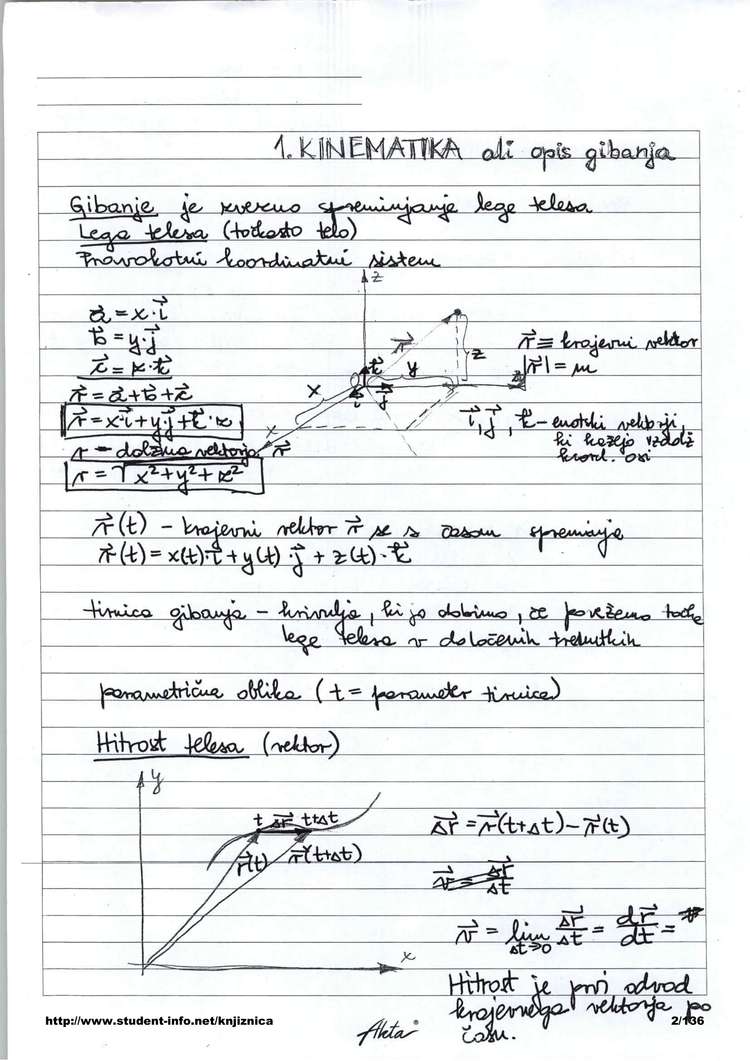 1. KINEMATIKA ali opis gibanja
Gibanje je zvezno spreminjanje lege telesa
Lega telesa (točkasto telo)
Pravokotni koordinatni sistem
z
a⃗ = x·i⃗
b⃗ = y·j⃗
c⃗ = z·k⃗
r⃗ = a⃗+b⃗+c⃗
r⃗ = x·i⃗+y·j⃗+k⃗·z
r – dolžina vektorja r⃗
r = √x²+y²+z²
r⃗
z
k⃗
y
x
i⃗
j⃗
x
r⃗ ≡ krajevni vektor
|r⃗| = m
i⃗, j⃗, k⃗ – enotski vektorji,
ki kažejo vzdolž
koord. osi
r⃗(t) – krajevni vektor r⃗ se s časom spreminja
r⃗(t) = x(t)·i⃗ + y(t)·j⃗ + z(t)·k⃗
tirnica gibanja – krivulja, ki jo dobimo, če povežemo točke
lege telesa v določenih trenutkih
parametrična oblika (t = parameter tirnice)
Hitrost telesa (vektor)
y
t Δr⃗ t+Δt
r⃗(t) r⃗(t+Δt)
x
Δr⃗ = r⃗(t+Δt) – r⃗(t)
v⃗ = Δr⃗/Δt
v⃗ = lim Δt→0 Δr⃗/Δt = dr⃗/dt =
Hitrost je prvi odvod
krajevnega vektorja po
času.
http://www.student-info.net/knjiznica
Akta
2/136